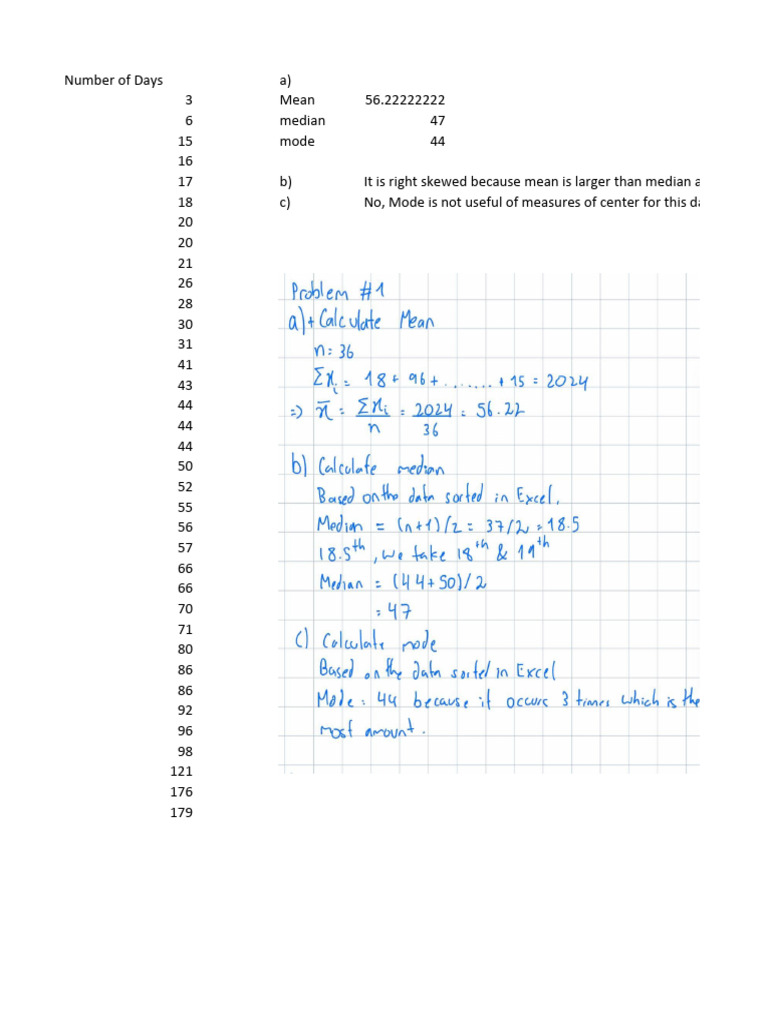 Number of Days a)
3 Mean 56.22222222
6 median 47
15 mode 44
16
17 b) It is right skewed because mean is larger than median a
18 c) No, Mode is not useful of measures of center for this da
20
20
21
26
28
30
31
41
43
44
44
44
50
52
55
56
57
66
66
70
71
80
86
86
92
96
98
121
176
179
Problem #1
a) + Calculate Mean
n = 36
Σxᵢ = 18 + 96 + ....... + 15 = 2024
=> x̄ = Σxᵢ / n = 2024 / 36 = 56.22
b) Calculate median
Based on the data sorted in Excel,
Median = (n+1)/2 = 37/2 = 18.5
18.5th, we take 18th & 19th
Median = (44+50)/2
= 47
c) Calculate mode
Based on the data sorted in Excel
Mode: 44 because it occurs 3 times which is the
most amount.